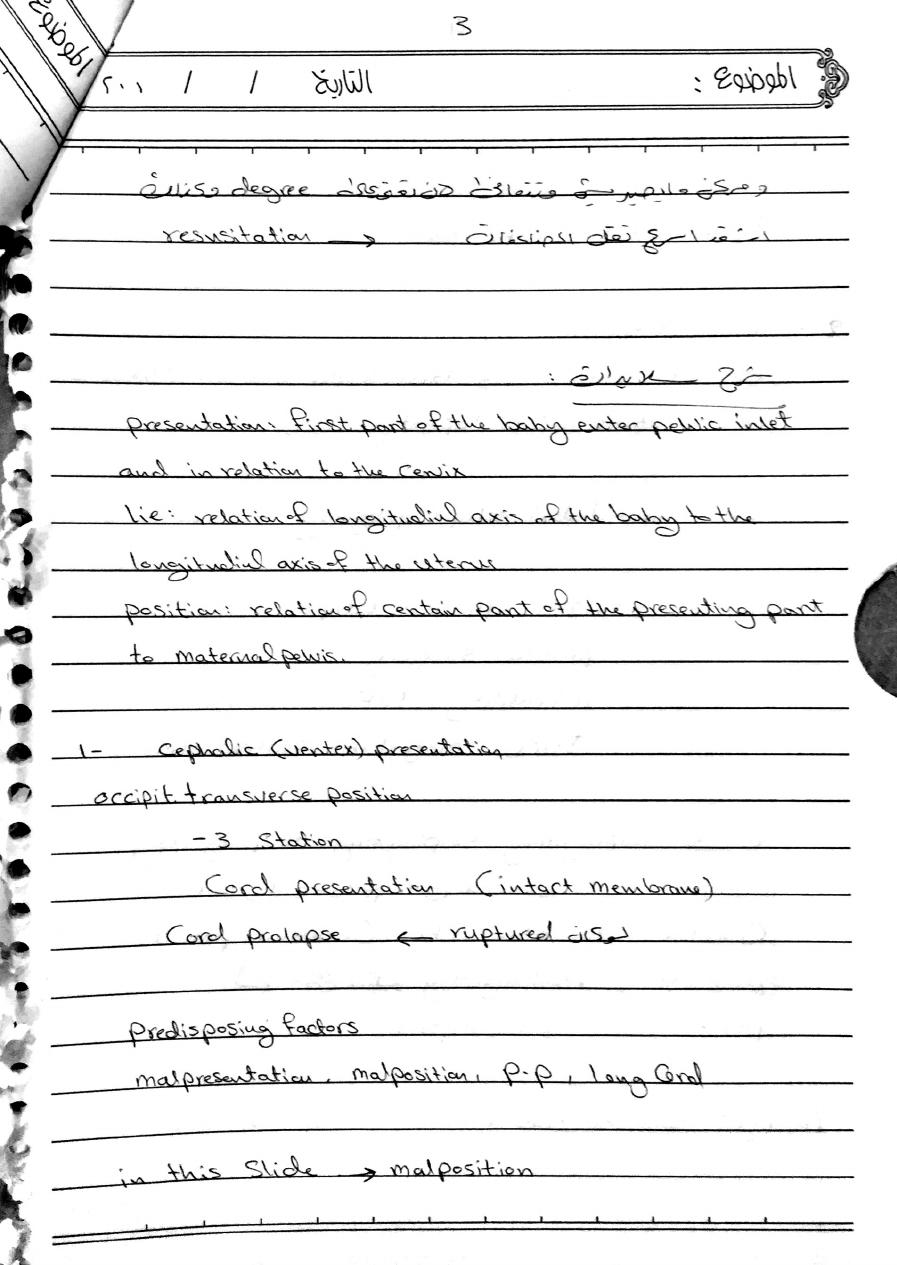 3
الموضوع
الموضوع : التاريخ / / ٢٠٠١
degree وكذلك
resusitation →
شرح سلايدات :
presentation: first part of the baby enter pelvic inlet
and in relation to the cervix
lie: relation of longitudinl axis of the baby to the
longitudinl axis of the uterus
position: relation of certain part of the presenting part
to maternal pelvis.
1- Cephalic (vertex) presentation
occipit transverse position
-3 Station
Cord presentation (intact membrane)
لو كان ruptured ← Cord prolapse
Predisposing factors
malpresentation, malposition, P.P, long Cord
in this Slide → malposition